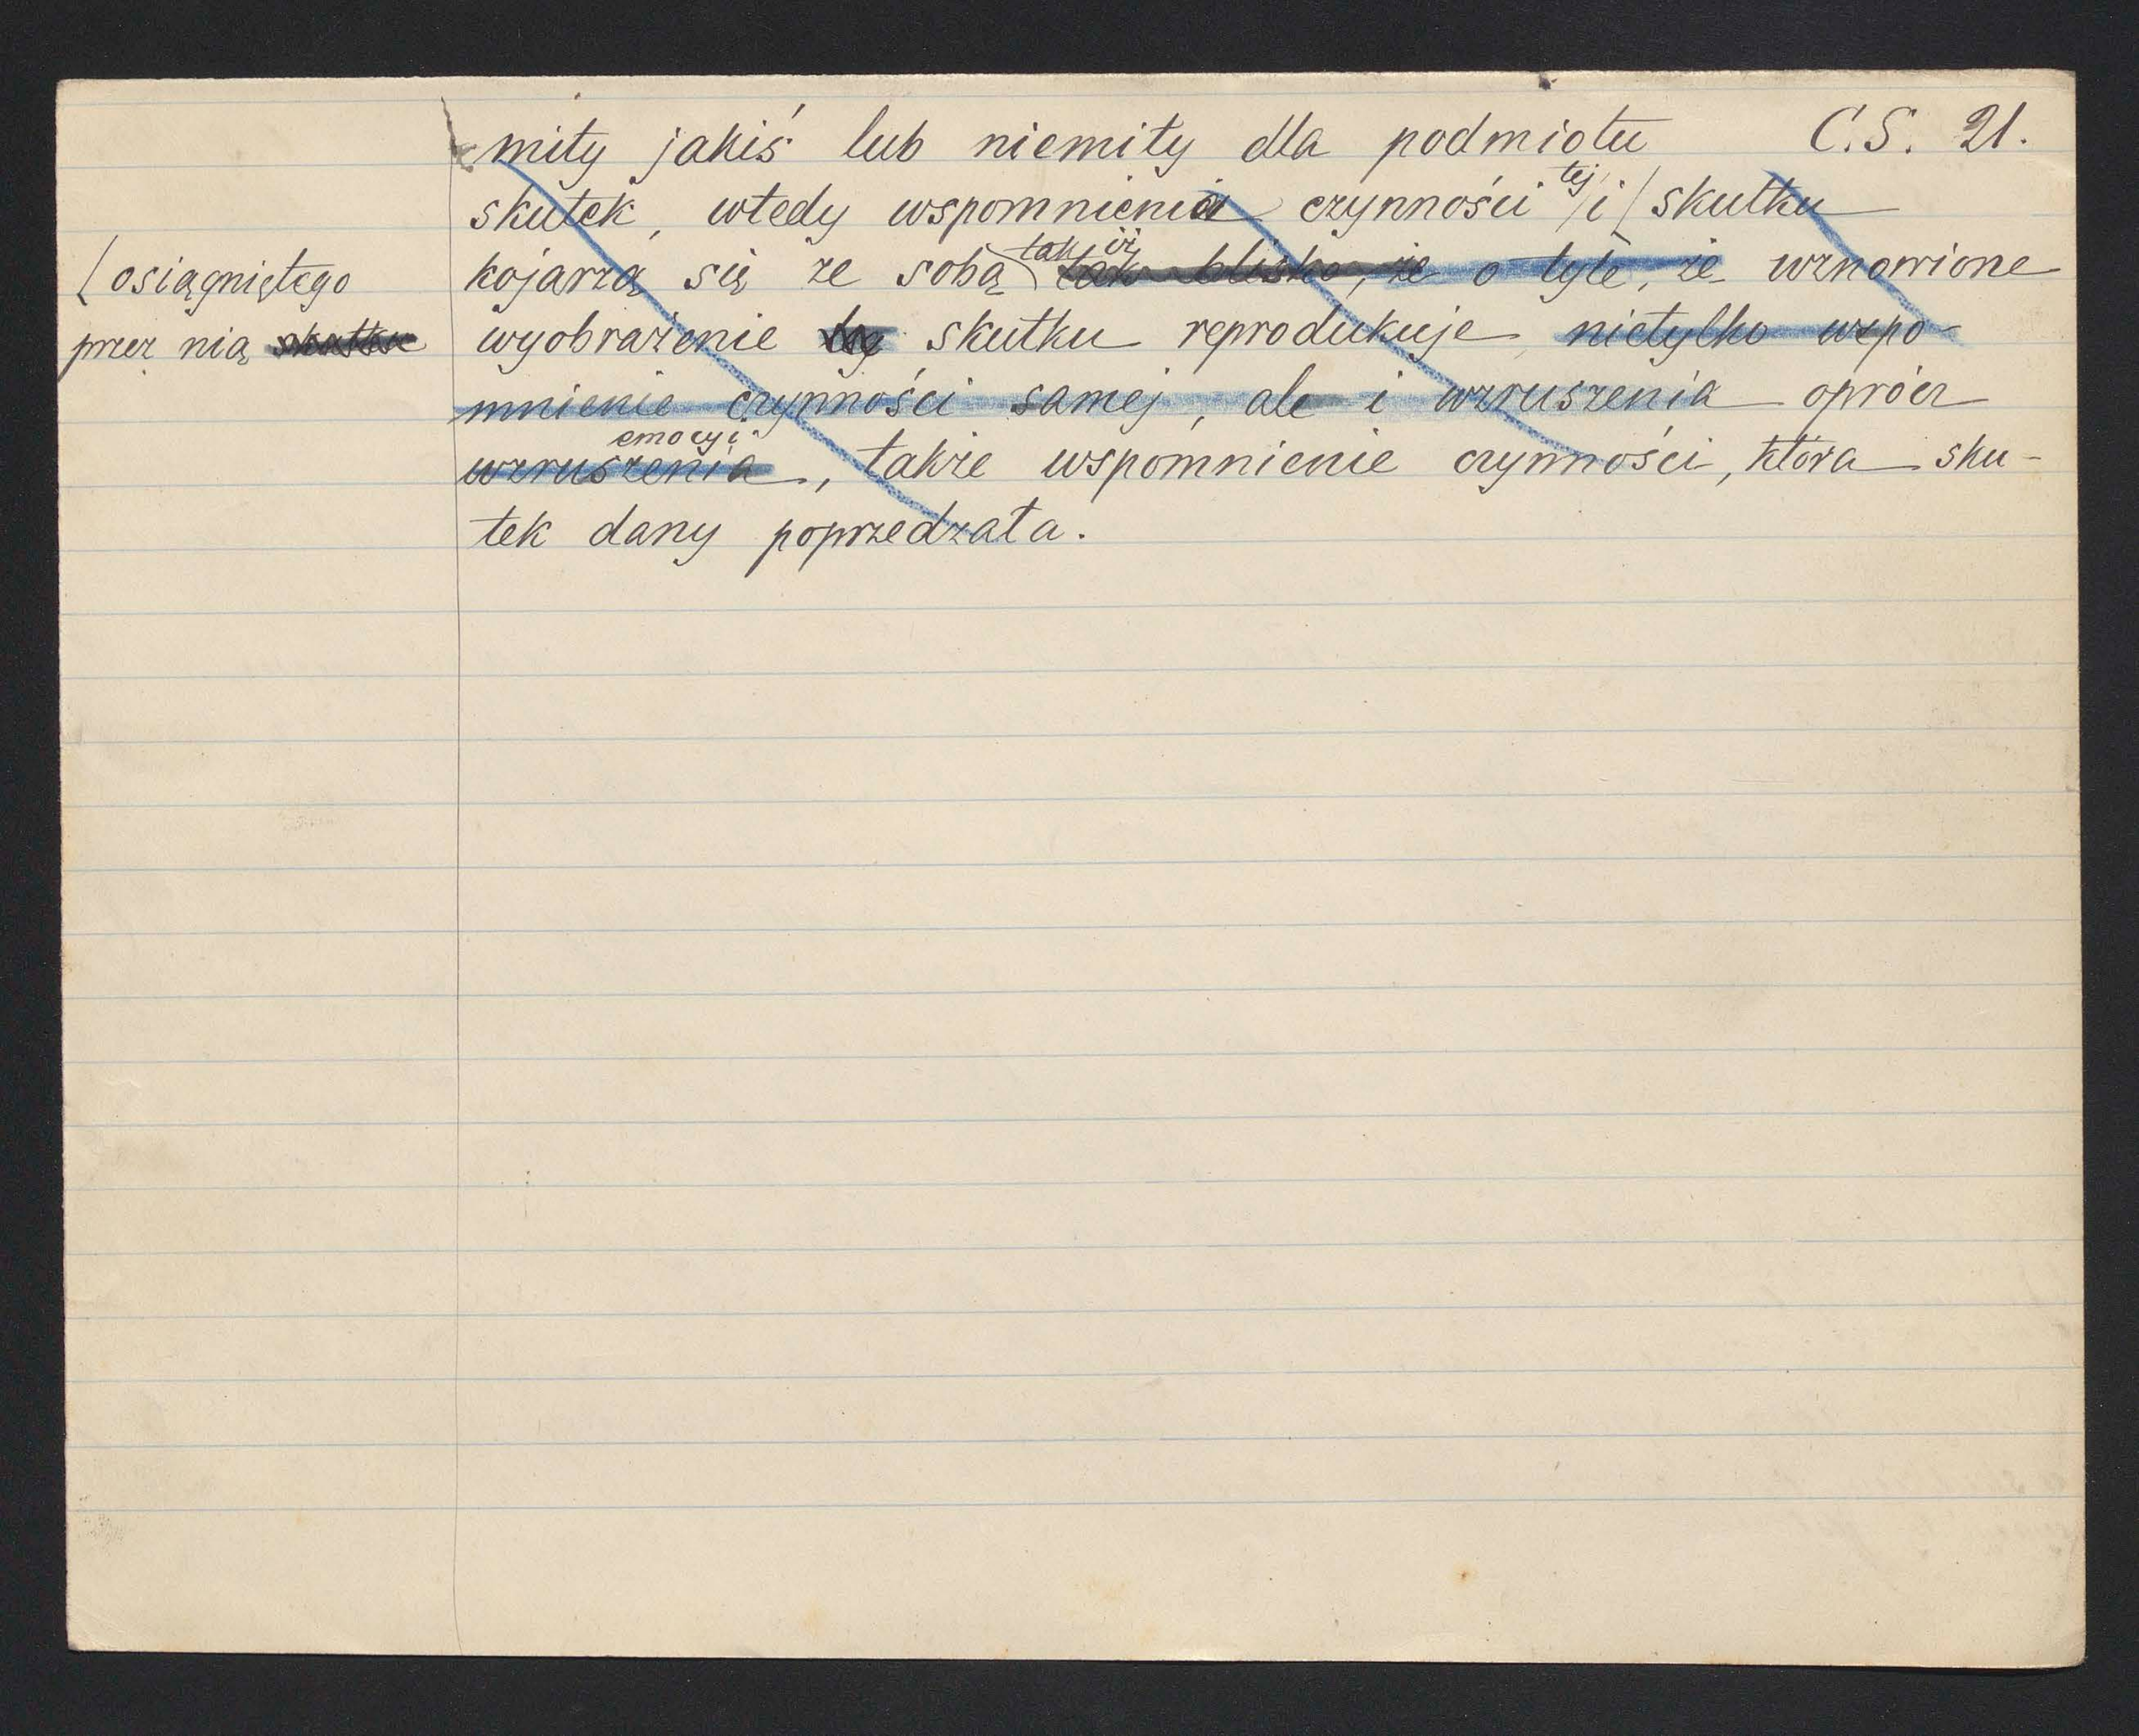 miły jakiś lub niemiły dla podmiotu C.S. 21.
skutek, wtedy wspomnienia czynności tej i skutku
[osiągniętego
przez nią skutku
kojarzą się ze sobą tak iż tak blisko, że o tyle, że wznowione
wyobrażenie skutku reprodukuje nietylko wspo-
mnienie czynności samej, ale i wzruszenia oprócz
emocyi
wzruszenia, także wspomnienie czynności, która sku-
tek dany poprzedzała.